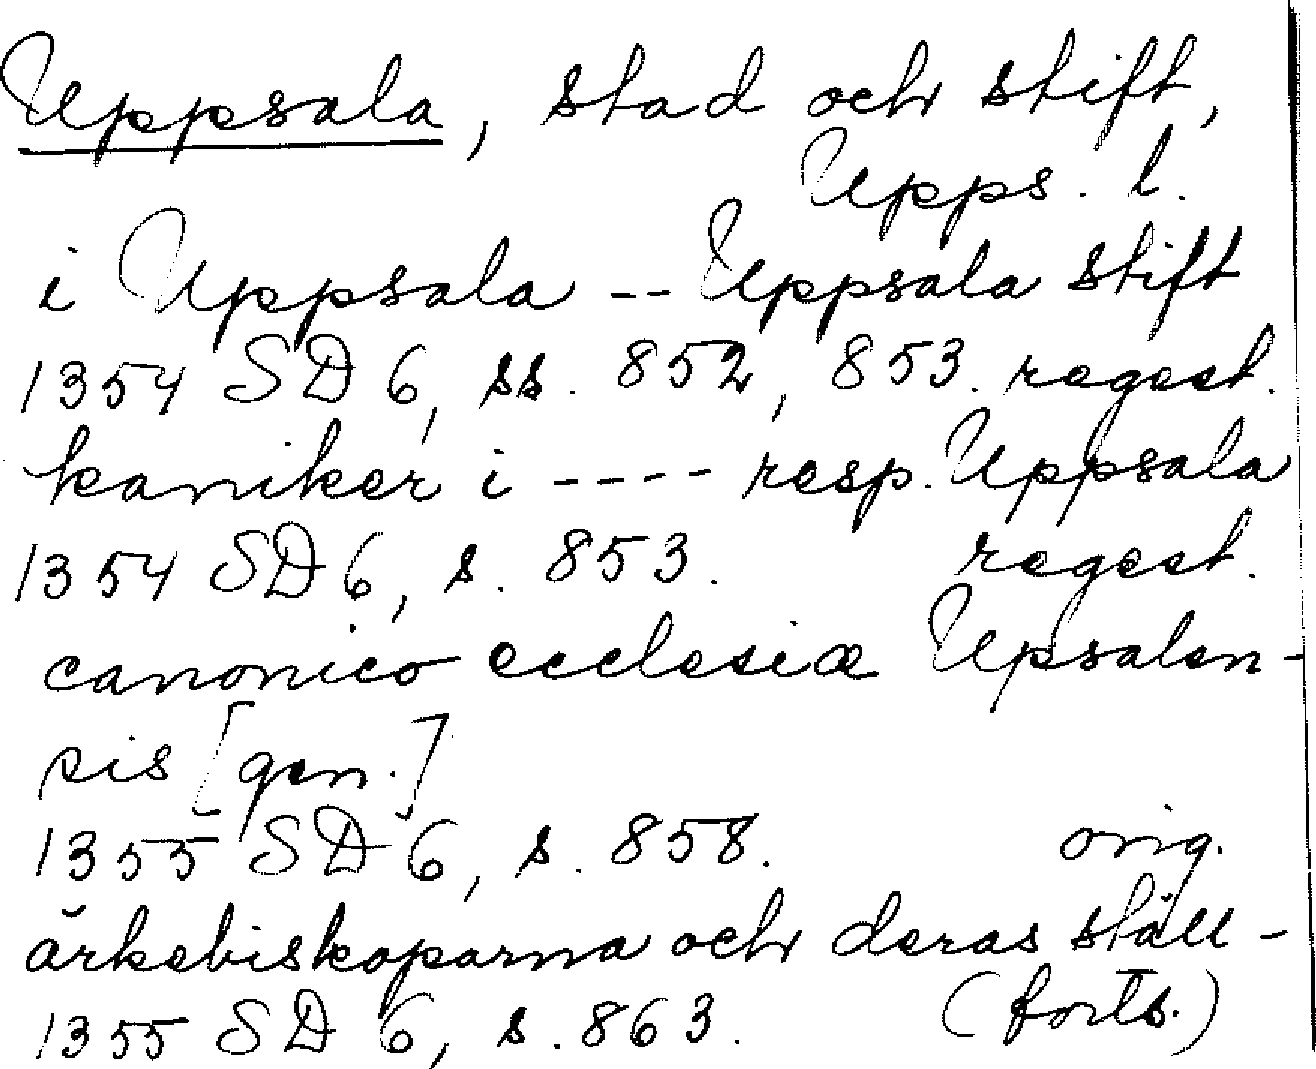 Uppsala, stad och stift,
Upps. l.
i Uppsala -- Uppsala stift
1354 SD 6, ss. 852, 853. regest.
kaniker i ---- resp. Uppsala
1354 SD 6, s. 853. regest.
canonico ecclesiæ Upsalen-
sis [gen.]
1355 SD 6, s. 858. orig.
ärkebiskoparna och deras ställ-
1355 SD 6, s. 863. (forts.)